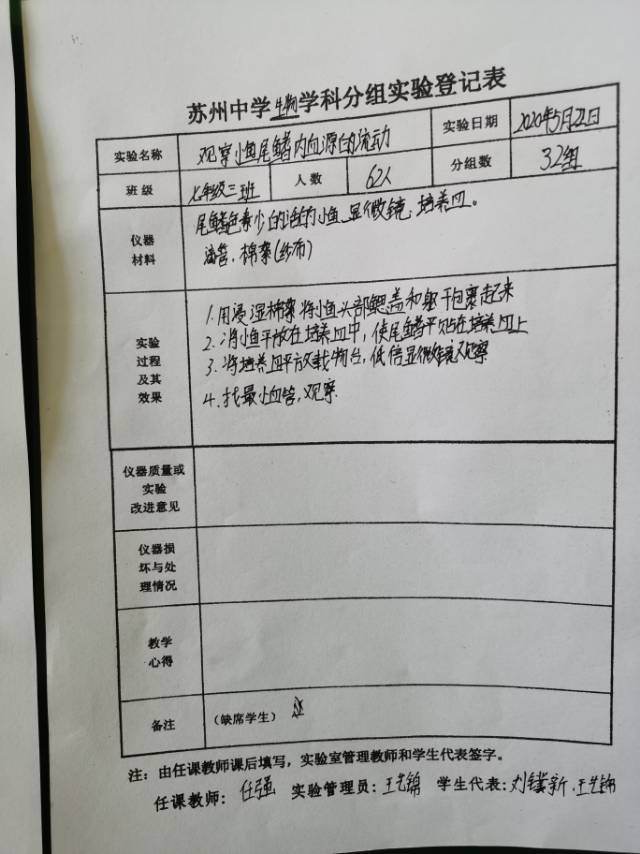 苏州中学生物学科分组实验登记表
实验名称 观察小鱼尾鳍内血源的流动 实验日期 2020年5月22日
班级 七年级三班 人数 62人 分组数 32组
仪器材料 尾鳍色素少的活的小鱼、显微镜、培养皿。
滴管、棉絮(纱布)
实验过程及其效果
1.用浸湿棉絮将小鱼头部鳃盖和躯干包裹起来
2.将小鱼平放在培养皿中,使尾鳍平贴在培养皿上
3.将培养皿平放载物台,低倍显微镜观察
4.找最小血管,观察.
仪器质量或实验改进意见
仪器损坏与处理情况
教学心得
备注 (缺席学生)
注:由任课教师课后填写,实验室管理教师和学生代表签字。
任课教师:任强 实验管理员:王艺锦 学生代表:刘 新、王艺锦